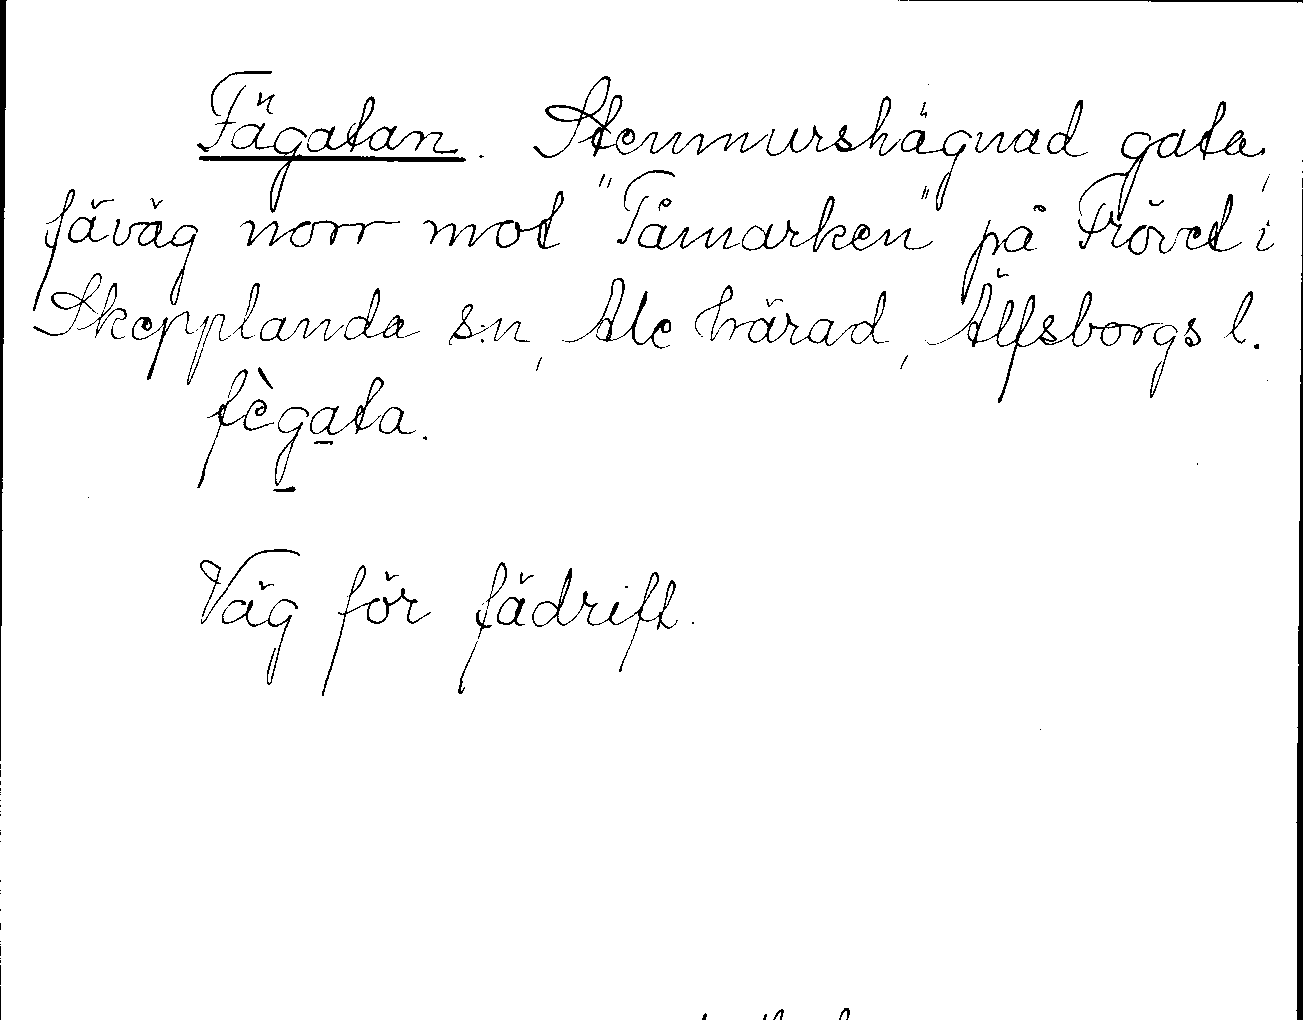 Fägatan. Stenmurshägnad gata,
fäväg norr mot "Tåmarken" på Frövet i
Skepplanda s:n, Ale härad, Älfsborgs l.
fègata.
Väg för fädrift.